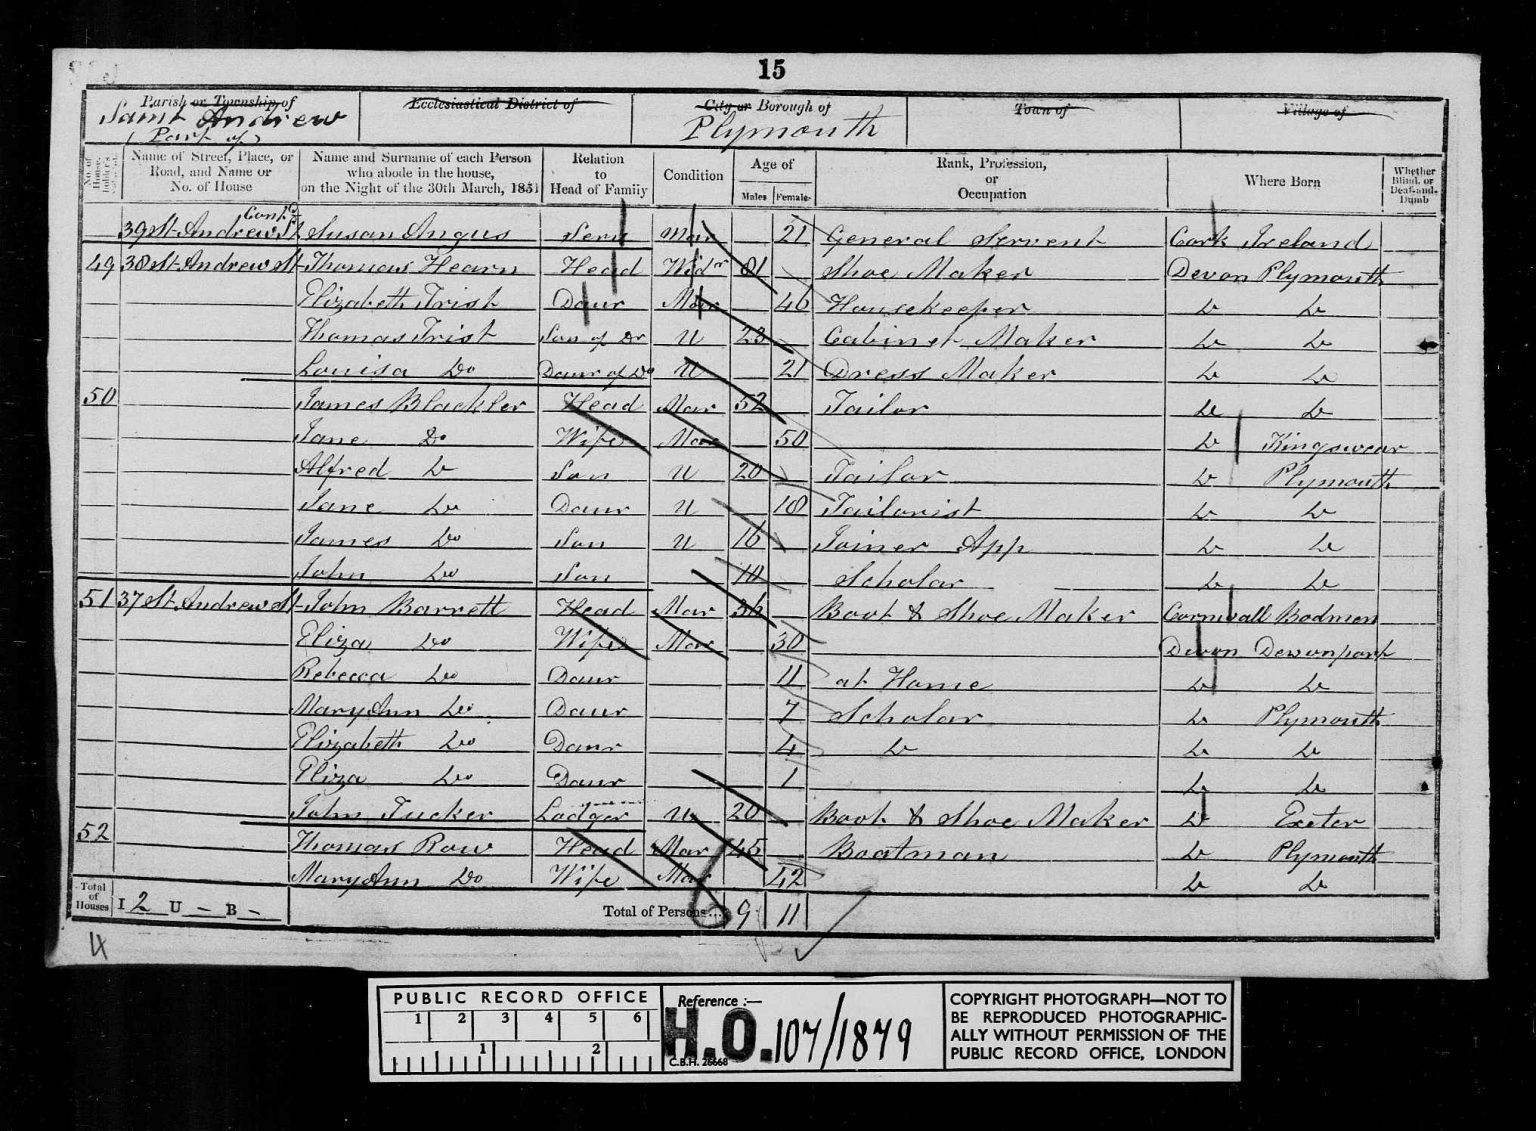 15
Parish or Township of
Saint Andrew
(Part of)
Ecclesiastical District of
City or Borough of
Plymouth
Town of
Village of
No. of House-holder's
Name of Street, Place, or Road, and Name or No. of House
Name and Surname of each Person who abode in the house, on the Night of the 30th March, 1851
Relation to Head of Family
Condition
Age of
Males
Females
Rank, Profession, or Occupation
Where Born
Whether Blind, or Deaf-and-Dumb
Contd
39 St Andrew St Susan Angus Serv Mar 21 General Servent Cork Ireland
49 38 St Andrew St Thomas Hearn Head Widr 81 Shoe Maker Devon Plymouth
Elizabeth Trist Daur Mar 46 Housekeeper Do Do
Thomas Trist Son of Dr U 23 Cabinet Maker Do Do
Louisa Do Daur of Do U 21 Dress Maker Do Do
50 James Blackler Head Mar 52 Tailor Do Do
Jane Do Wife Mar 50 Do Kingswear
Alfred Do Son U 20 Tailor Do Plymouth
Jane Do Daur U 18 Tailorist Do Do
James Do Son U 16 Joiner App Do Do
John Do Son 10 Scholar Do Do
51 37 St Andrew St John Barrett Head Mar 36 Boot & Shoe Maker Cornwall Bodmon
Eliza Do Wife Mar 30 Devon Devonport
Rebecca Do Daur 11 at Home Do Do
Mary Ann Do Daur 7 Scholar Do Plymouth
Elizabeth Do Daur 4 Do Do Do
Eliza Do Daur 1 Do Do
John Tucker Lodger U 20 Boot & Shoe Maker Do Exeter
52 Thomas Row Head Mar 45 Boatman Do Plymouth
Mary Ann Do Wife Mar 42 Do Do
Total of Houses I 2 U - B -
Total of Persons... 9 11
4
PUBLIC RECORD OFFICE
1 2 3 4 5 6
1 2
Reference :-
H.O. 107/1879
C.B.H. 26668
COPYRIGHT PHOTOGRAPH—NOT TO
BE REPRODUCED PHOTOGRAPHIC-
ALLY WITHOUT PERMISSION OF THE
PUBLIC RECORD OFFICE, LONDON